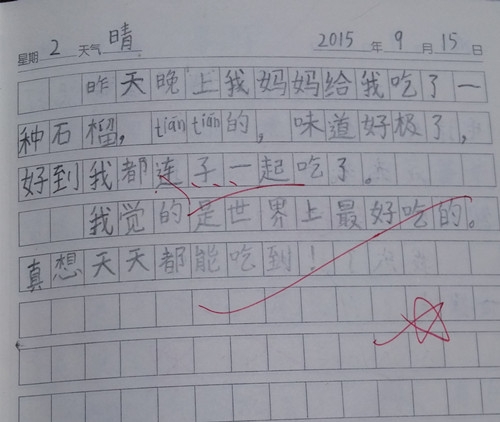 星期 2 天气 晴 2015 年 9 月 15 日
昨天晚上我妈妈给我吃了一
种石榴，tián tián的，味道好极了，
好到我都连子一起吃了。
我觉的是世界上最好吃的。
真想天天都能吃到！